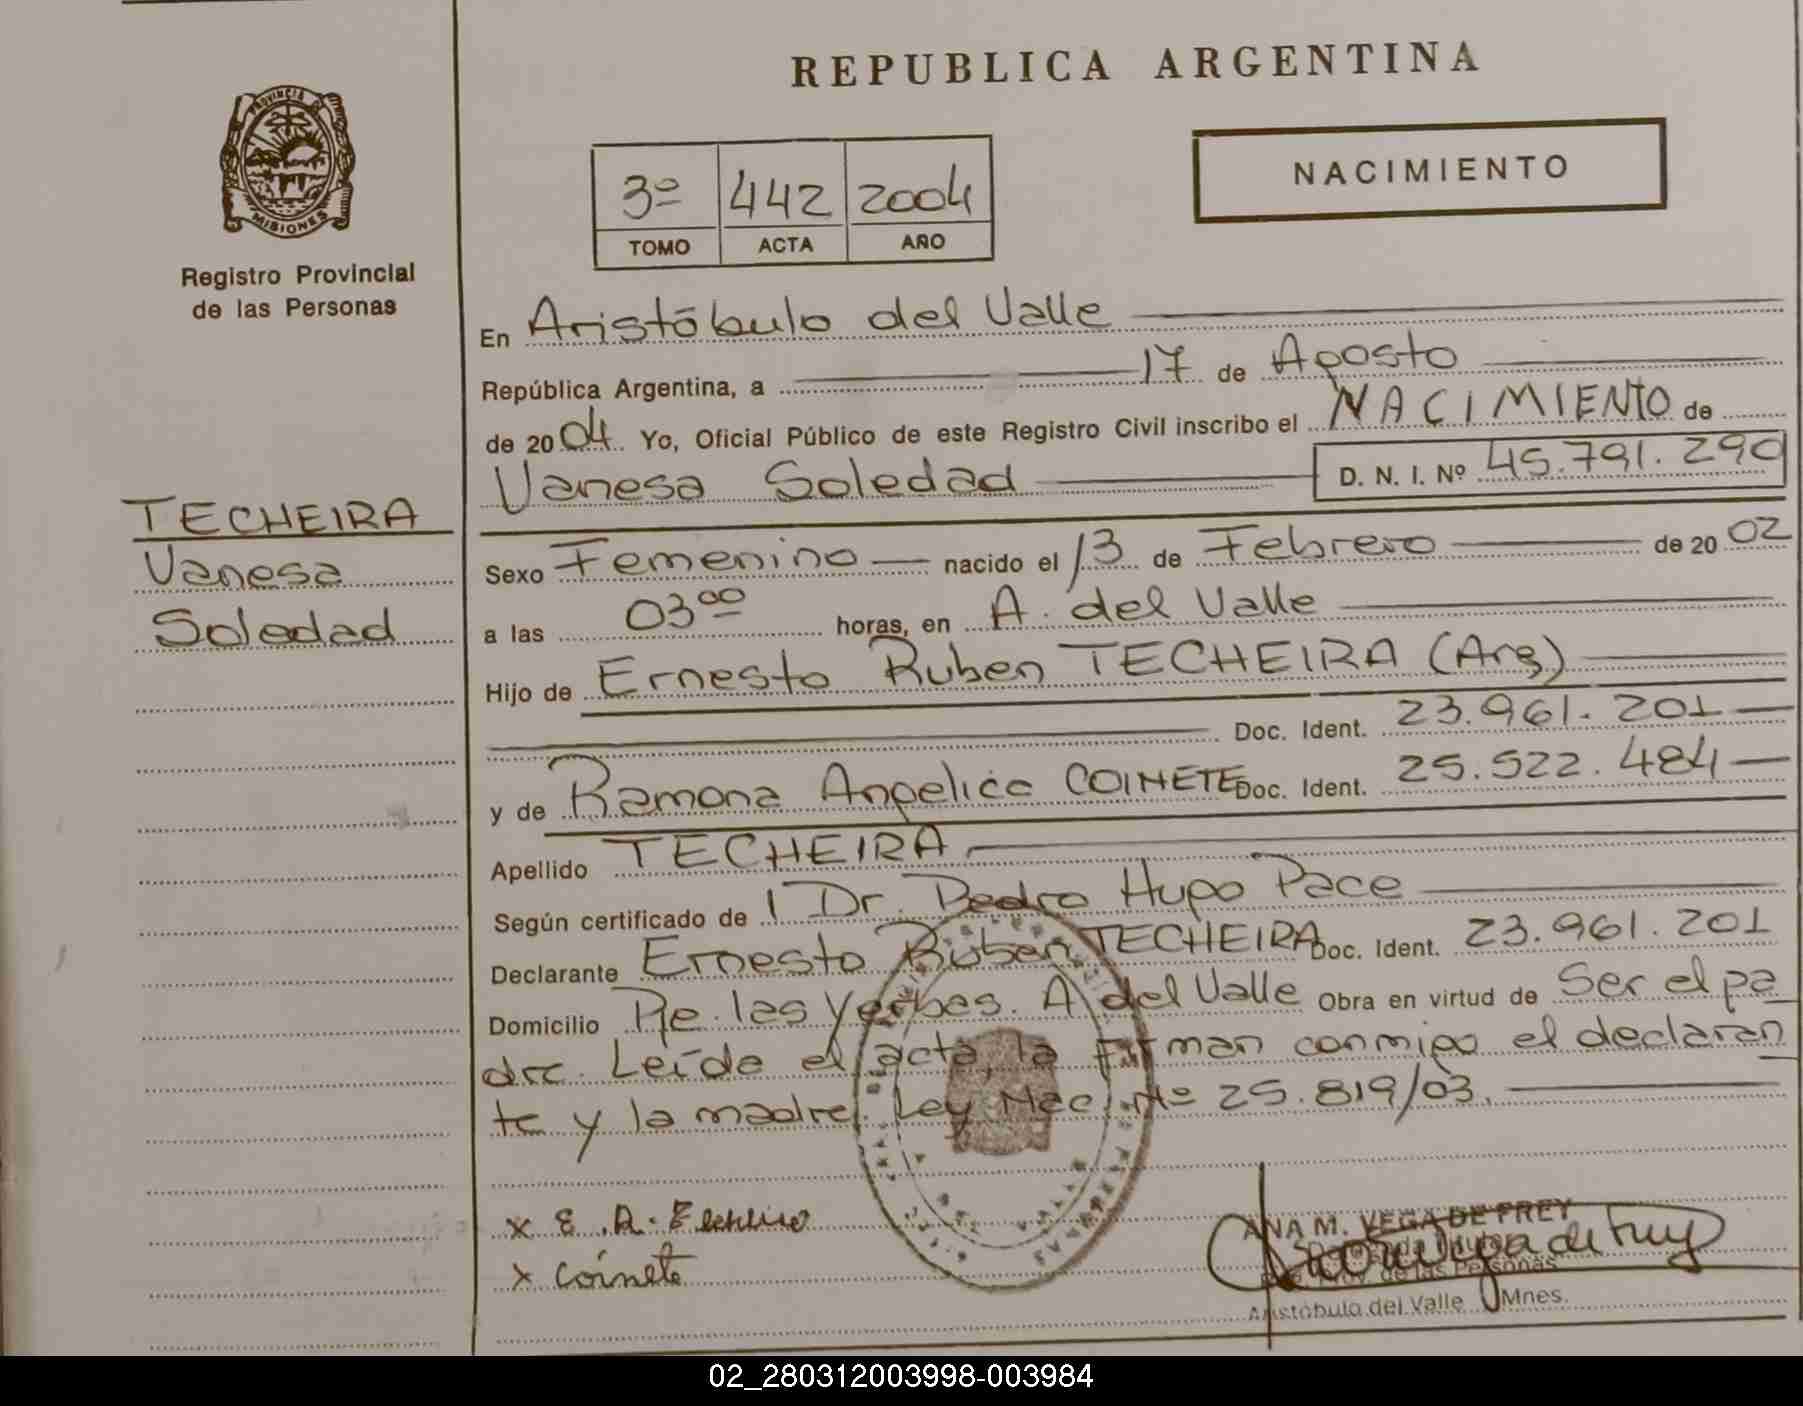 REPUBLICA ARGENTINA
PROVINCIA DE
MISIONES
Registro Provincial
de las Personas
3º 442 2004
TOMO ACTA AÑO
NACIMIENTO
En Aristóbulo del Valle
República Argentina, a 17 de Agosto
de 2004 Yo, Oficial Público de este Registro Civil inscribo el NACIMIENTO de
Vanesa Soledad D. N. I. Nº 45.791.290
TECHEIRA
Vanesa
Soledad
Sexo Femenino nacido el 13 de Febrero de 2002
a las 03ºº horas, en A. del Valle
Hijo de Ernesto Ruben TECHEIRA (Arg)
Doc. Ident. 23.961.201
y de Ramona Angelica COINETE Doc. Ident. 25.522.484
Apellido TECHEIRA
Según certificado de Dr. Pedro Hugo Pace
Declarante Ernesto Ruben TECHEIRA Doc. Ident. 23.961.201
Domicilio Pje. las Yerbas. A del Valle Obra en virtud de Ser el pa
dre. Leída el acta, la firman conmigo el declaran
te y la madre. Ley Nac. Nº 25.819/03.
x E. R.
x coinete
ANA M. VEGA DE FREY
de las Personas
Aristóbulo del Valle Mnes.
02_280312003998-003984